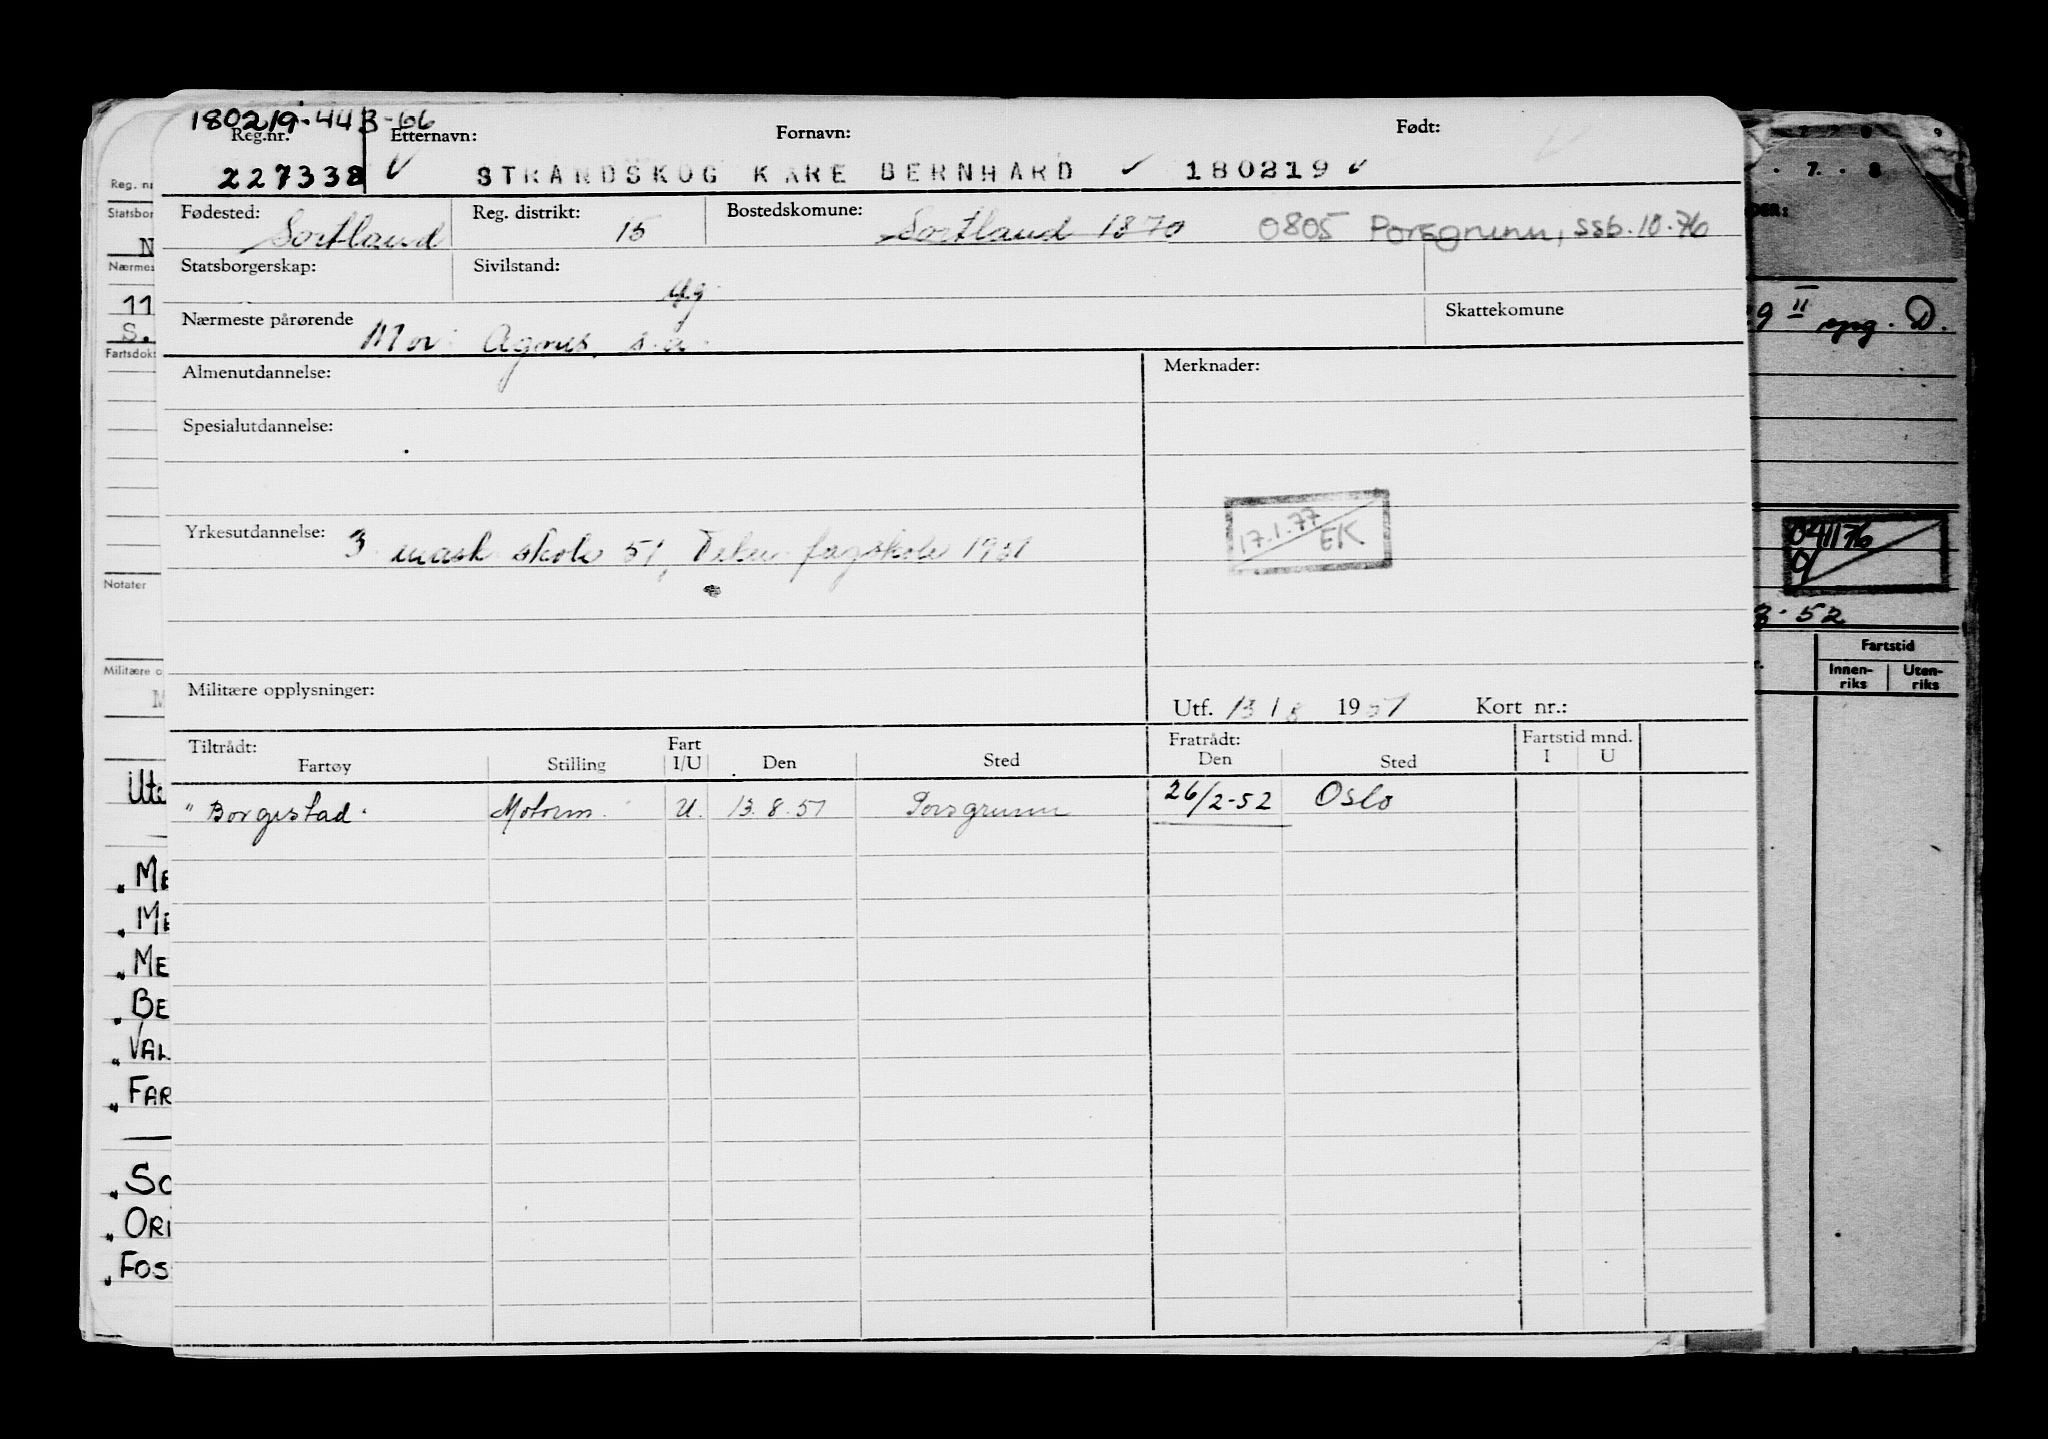 180219.443-66
Reg.nr. Etternavn: Fornavn: Født:
227338 STRANDSKOG KARE BERNHARD 180219
Fødested: Sortland Reg. distrikt: 15 Bostedskomune: Sortland 1870 0805 Porsgrunn, ssb.10.76
Statsborgerskap: Sivilstand: Ug.
Nærmeste pårørende Mor: Agnes, s.a. Skattekomune
Almenutdannelse: Merknader:
Spesialutdannelse:
17.1.77 EK
Yrkesutdannelse: 3 mask skole 51, fagskole 1951
Militære opplysninger: Utf. 13/8 1951 Kort nr.:
Tiltrådt: Fart Fratrådt: Fartstid mnd.
Fartøy Stilling I/U Den Sted Den Sted I U
"Borgestad" Motorm. U. 13.8.51 Porsgrunn 26/2-52 Oslo
Reg. nr
Statsbor
N
Nærmes
11
S.
Fartsdok
Notater
Militære o
M
Ute
"ME
"ME
"ME
"BE
"VAL
"FAR
"SO
"ORI
"FOS
. 7. . 8
DER:
9 II D.
041176
3.52
Fartstid
Innen-riks Uten-riks